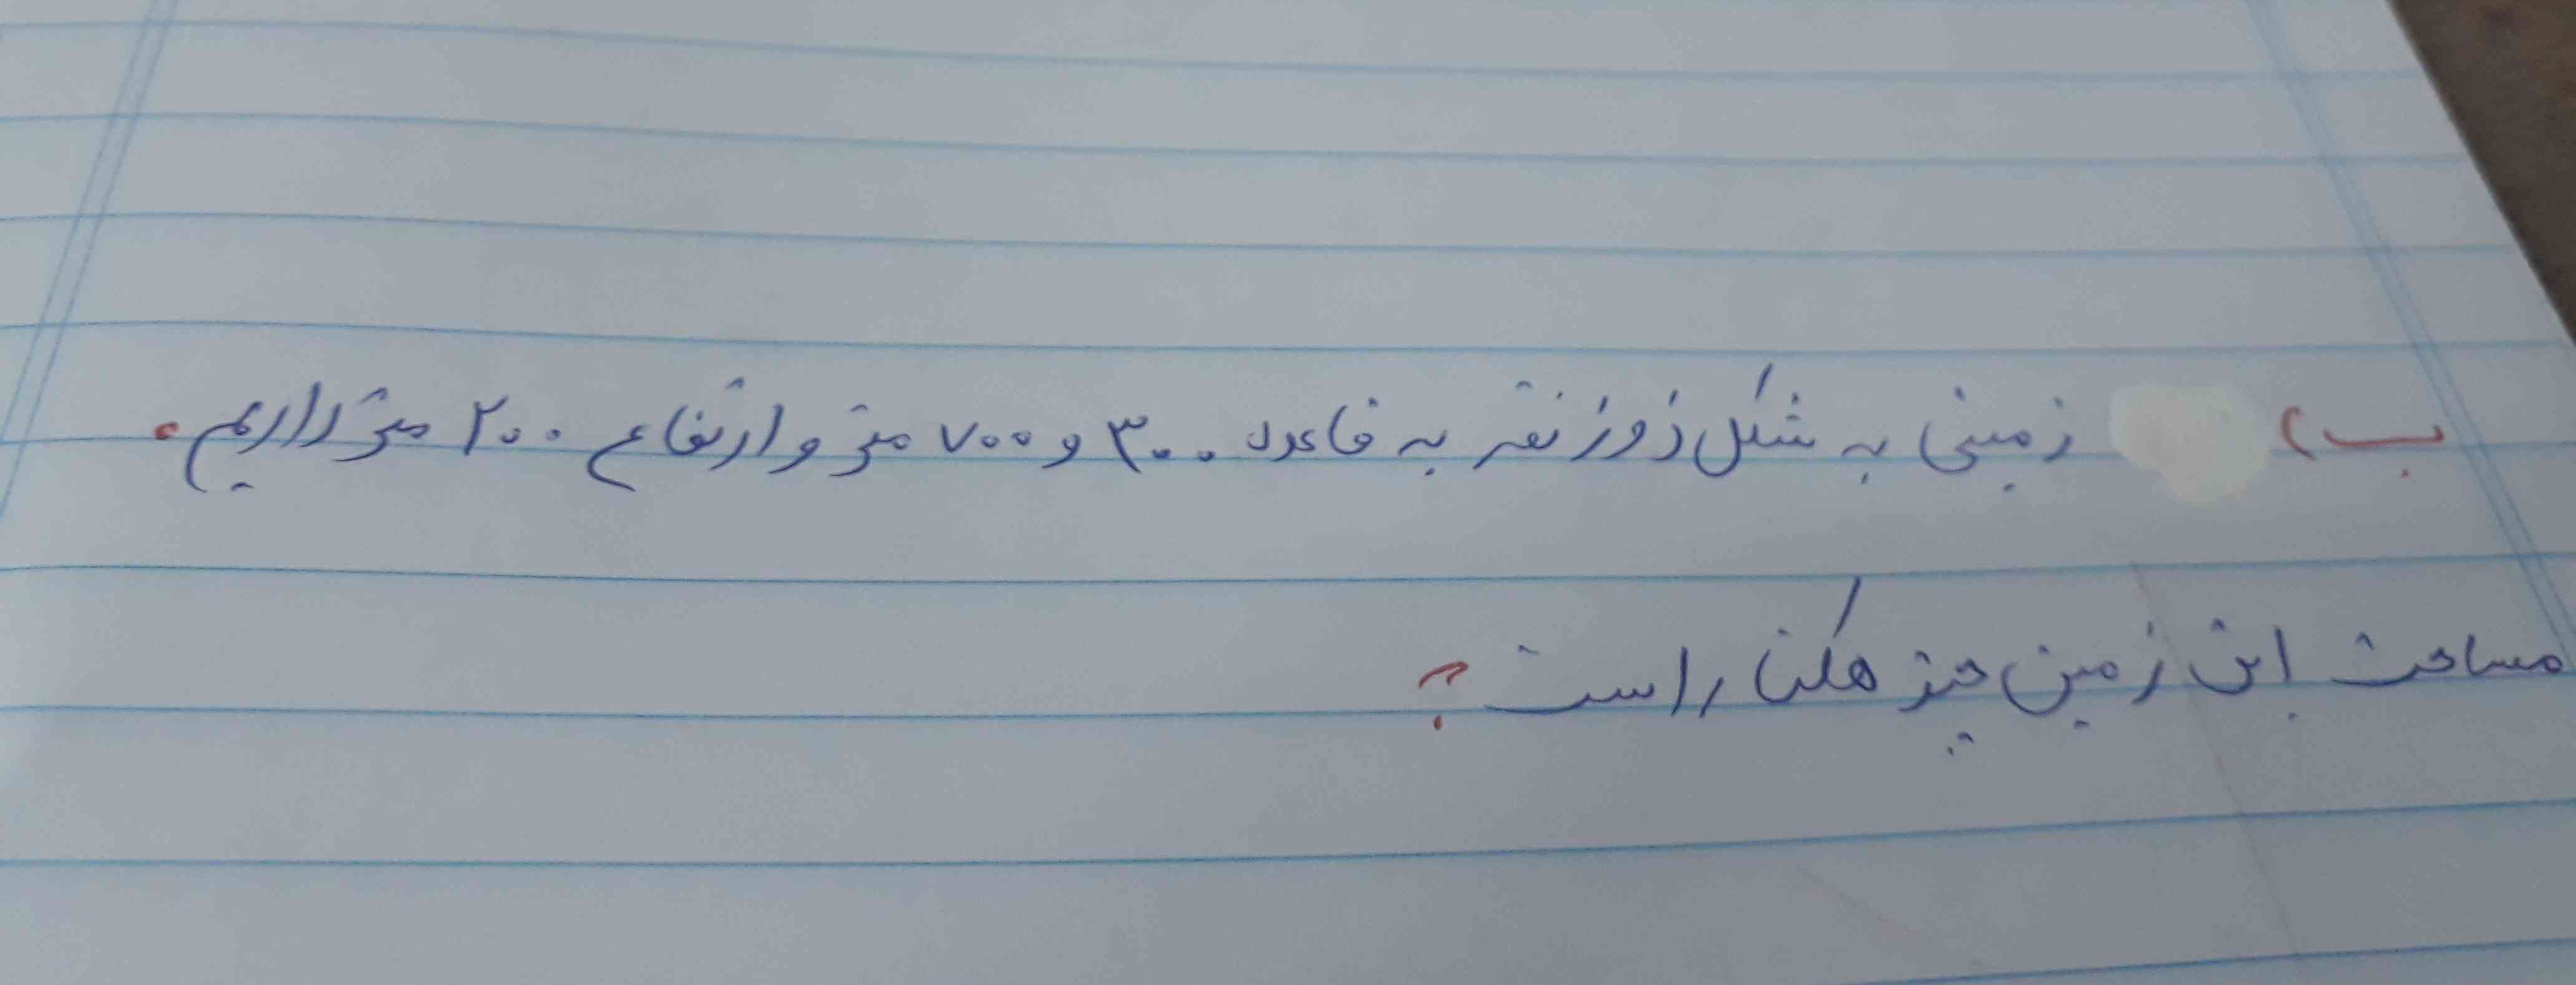 ب) زمینی به شکل ذوزنقه به قاعده ۳۰۰ و ۷۰۰ متر و ارتفاع ۲۰۰ متر داریم.
مساحت این زمین چند هکتار است؟